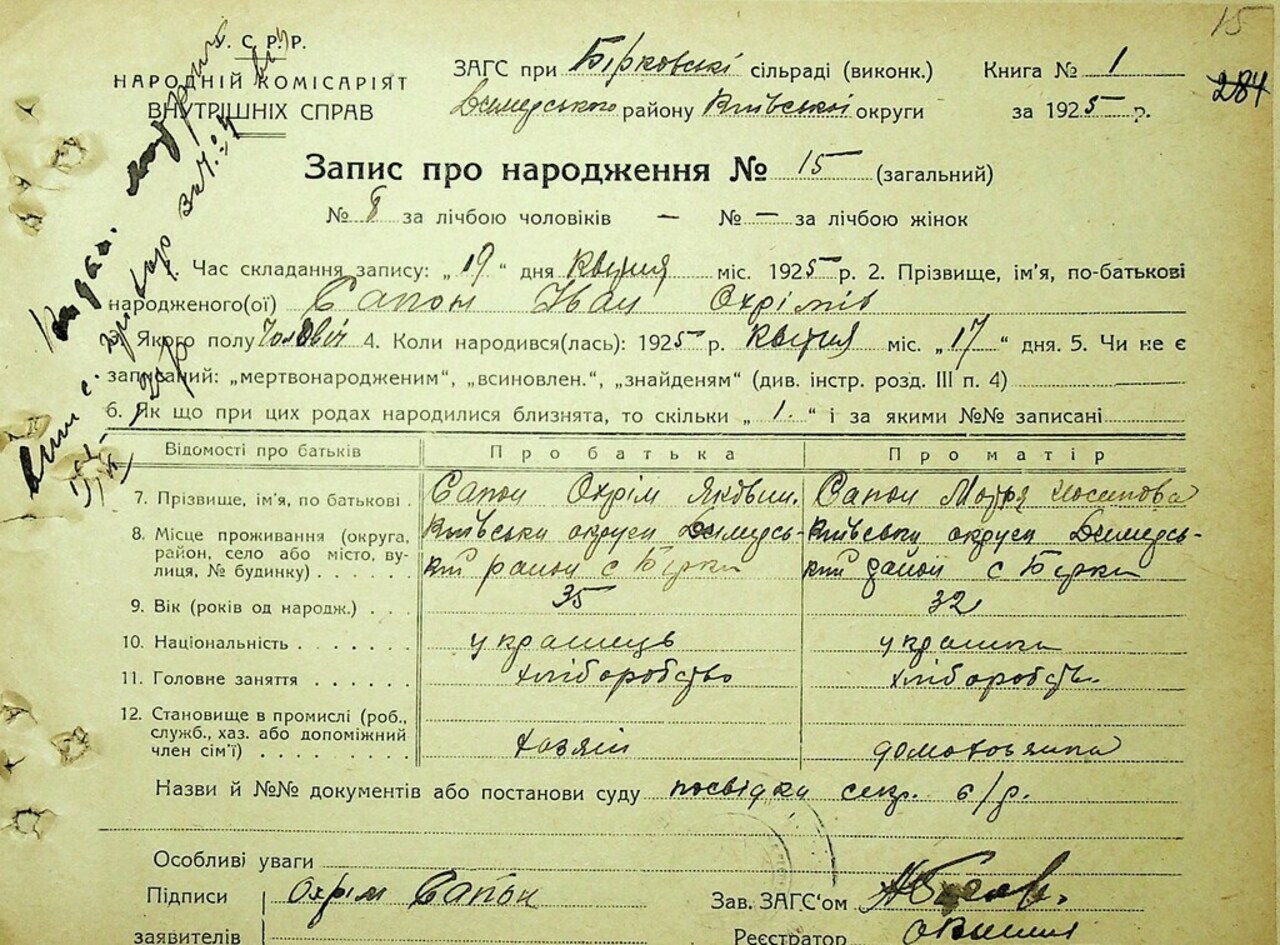 15
284
У. С. Р. Р.
НАРОДНІЙ КОМІСАРІЯТ
ВНУТРІШНІХ СПРАВ
ЗАГС при Бірковські сільраді (виконк.)
Димерського району Київської округи
Книга № 1
за 1925 р.
Запис про народження № 15 (загальний)
№ 8 за лічбою чоловіків — № — за лічбою жінок
Час складання запису: „19“ дня Квітня міс. 1925 р. 2. Прізвище, ім'я, по-батькові
народженого(ої) Сапон Іван Охрімів
3. Якого полу Чоловіч 4. Коли народився(лась): 1925 р. Квітня міс. „17“ дня. 5. Чи не є
записаний: „мертвонародженим“, „всиновлен.“, „знайденям“ (див. інстр. розд. III п. 4)
6. Як що при цих родах народилися близнята, то скільки „1.“ і за якими №№ записані
Відомості про батьків Про батька Про матір
7. Прізвище, ім'я, по батькові . Сапон Охрім Яковин. Сапон Мотря Йосипова
8. Місце проживання (округа, Київська округи Димерсь- Київська округи Димерсь-
район, село або місто, ву- кий район с Бірки кий район с Бірки
лиця, № будинку) . . . . .
9. Вік (років од народж.) . . . 35 32
10. Національність . . . . . . . українець українка
11. Головне заняття . . . . . . хліборобство хліборобств.
12. Становище в промислі (роб.,
служб., хаз. або допоміжний
член сім'ї) . . . . . . . . хазяїн домохозяйка
Назви й №№ документів або постанови суду посвідки секр. с/р.
Особливі уваги
Підписи Охрім Сапон Зав. ЗАГС'ом
заявителів Реєстратор